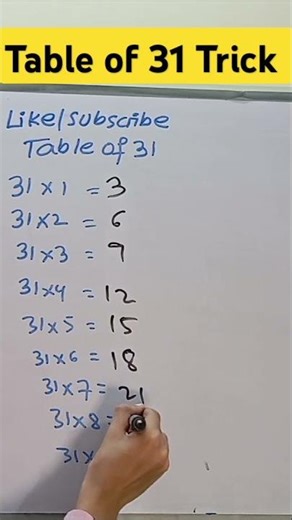 Table of 31 Trick
Like/Subscribe
Table of 31
31 x 1 = 3
31 x 2 = 6
31 x 3 = 9
31 x 4 = 12
31 x 5 = 15
31 x 6 = 18
31 x 7 = 21
31 x 8 =
31 x